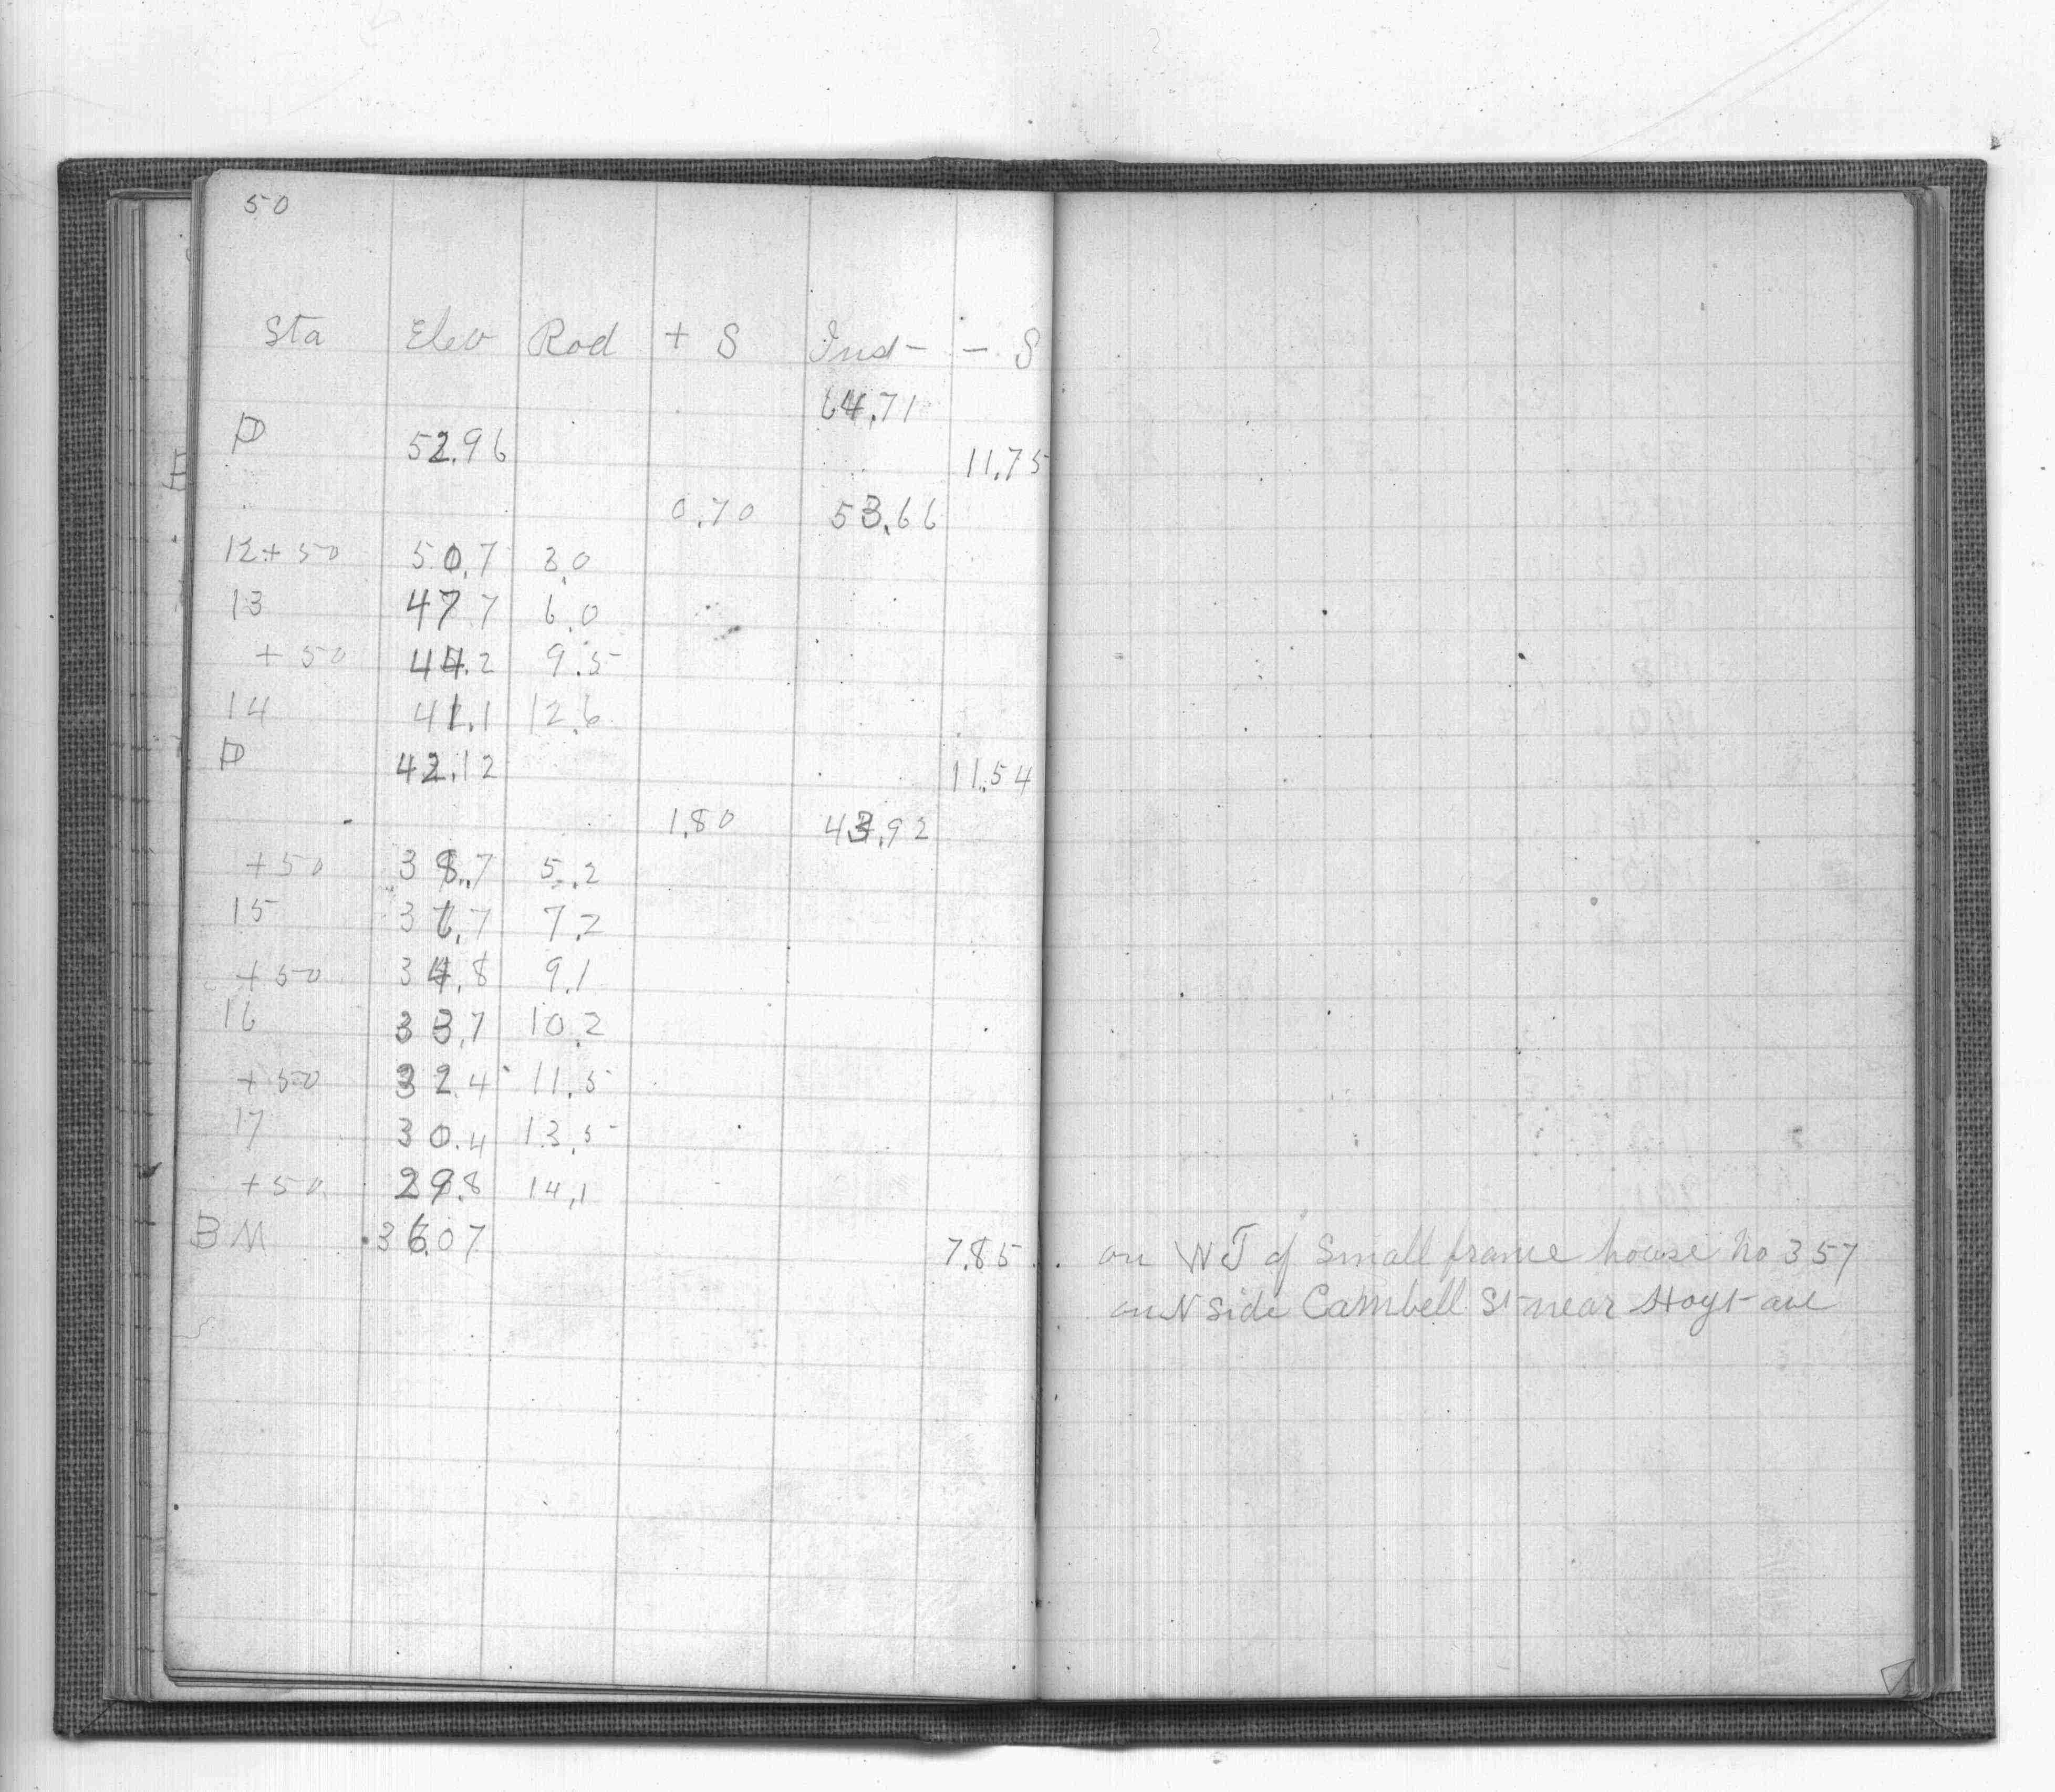 50
Sta Elev Rod + S Inst - S
64.71
52.96 11.75
0.70 53.66
12+50 50.7 3.0
13 47.7 6.0
+50 44.2 9.5
14 41.1 12.6
42.12 11.54
1.80 43.92
+50 38.7 5.2
15 36.7 7.2
+50 34.8 9.1
16 33.7 10.2
+50 32.4 11.5
17 30.4 13.5
+50 29.8 14.1
BM 36.07 7.85 on WT of Small frame house No 357
on N Side Cambell St near Hoyt ave